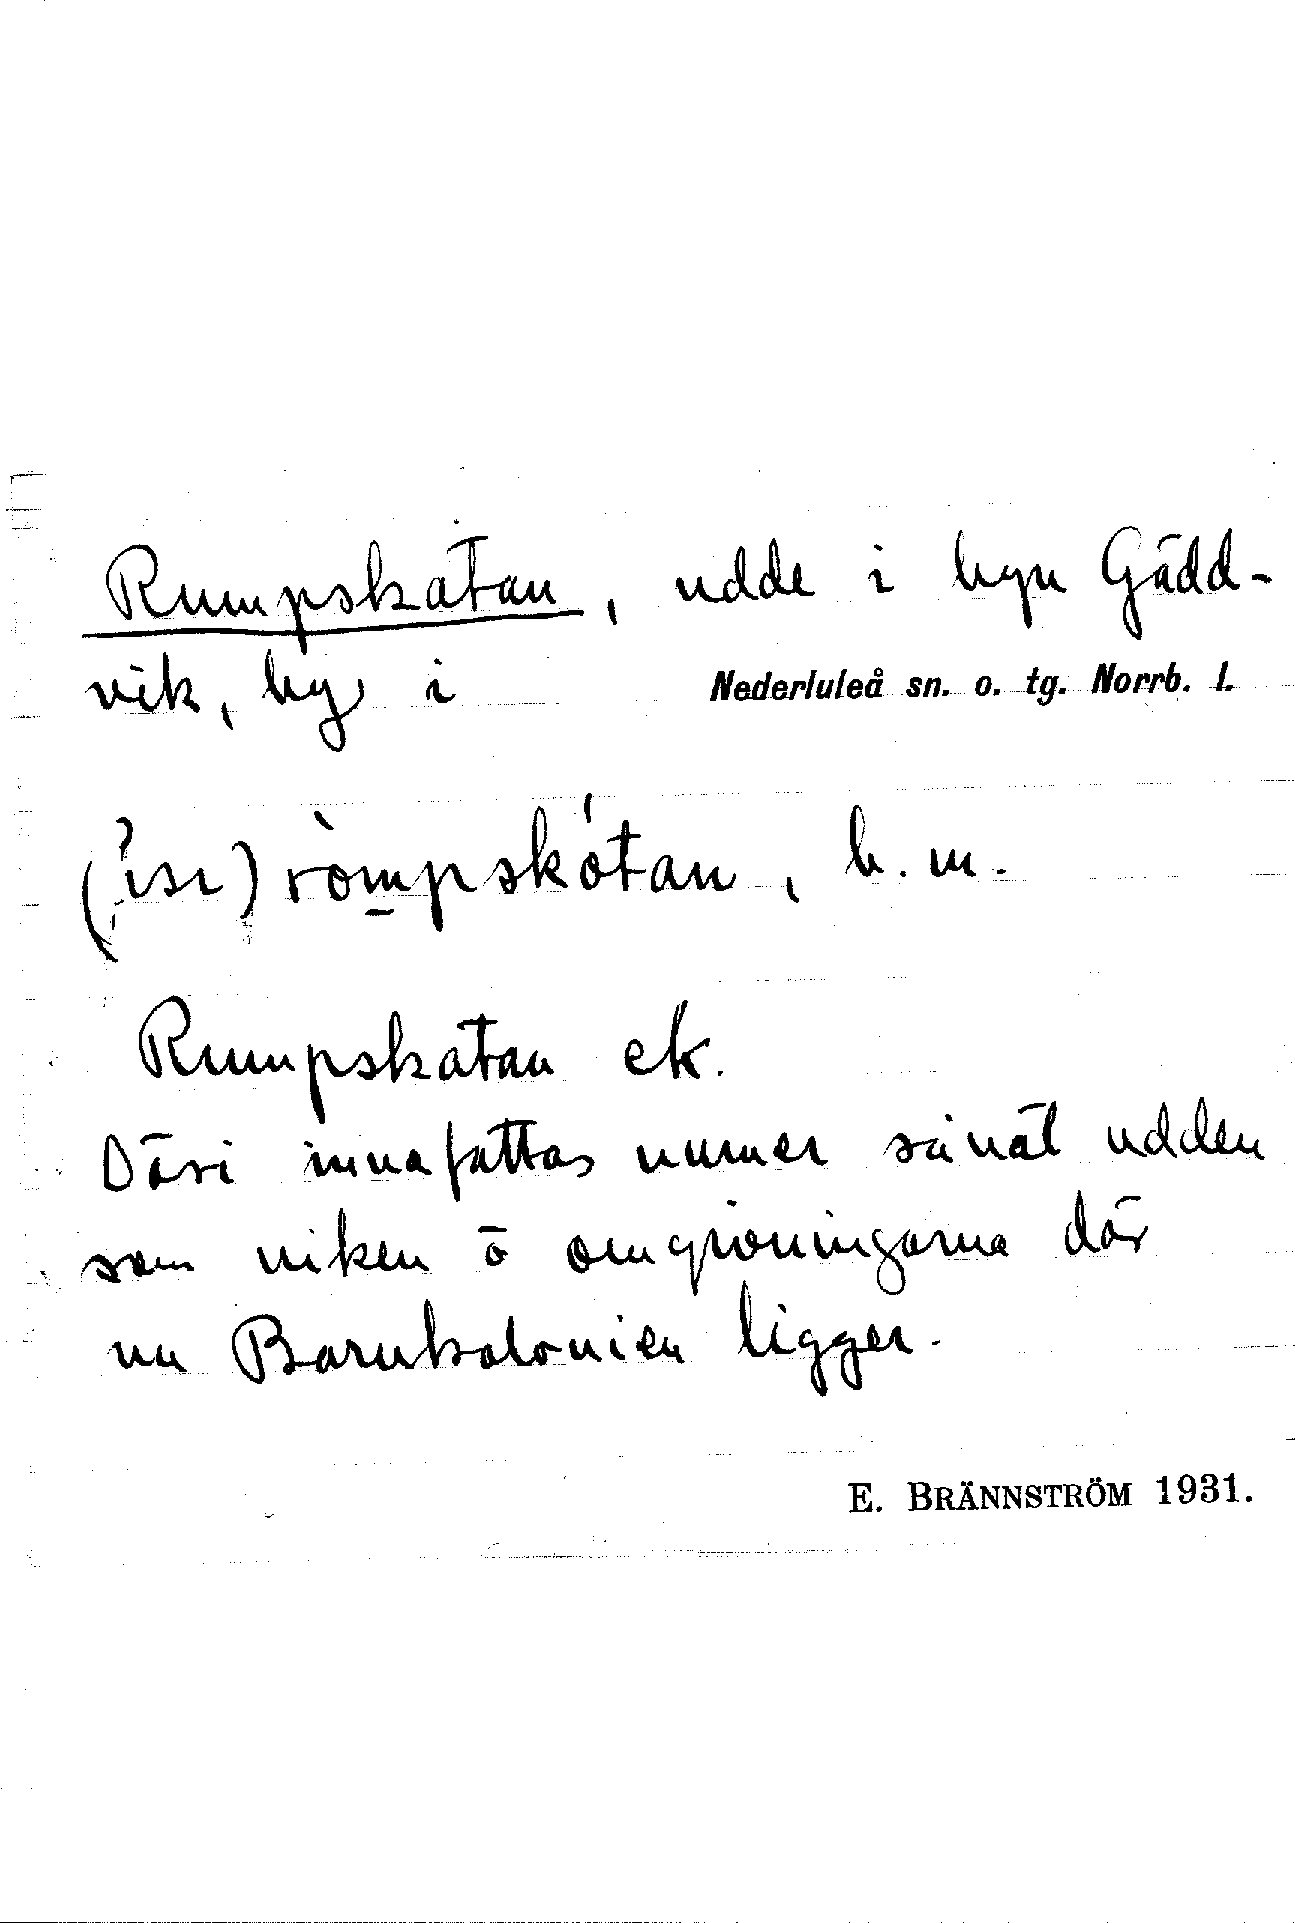 Rumpskatan, udde i byn Gädd-
vik, by i Nederluleå sn. o. tg. Norrb. l.
rò̀mpskótan, b. m.
Rumpskatan ek.
Däri innefattas numer såväl udden
som viken o omgivningarna där
nu Barnkolonien ligger.
E. BRÄNNSTRÖM 1931.